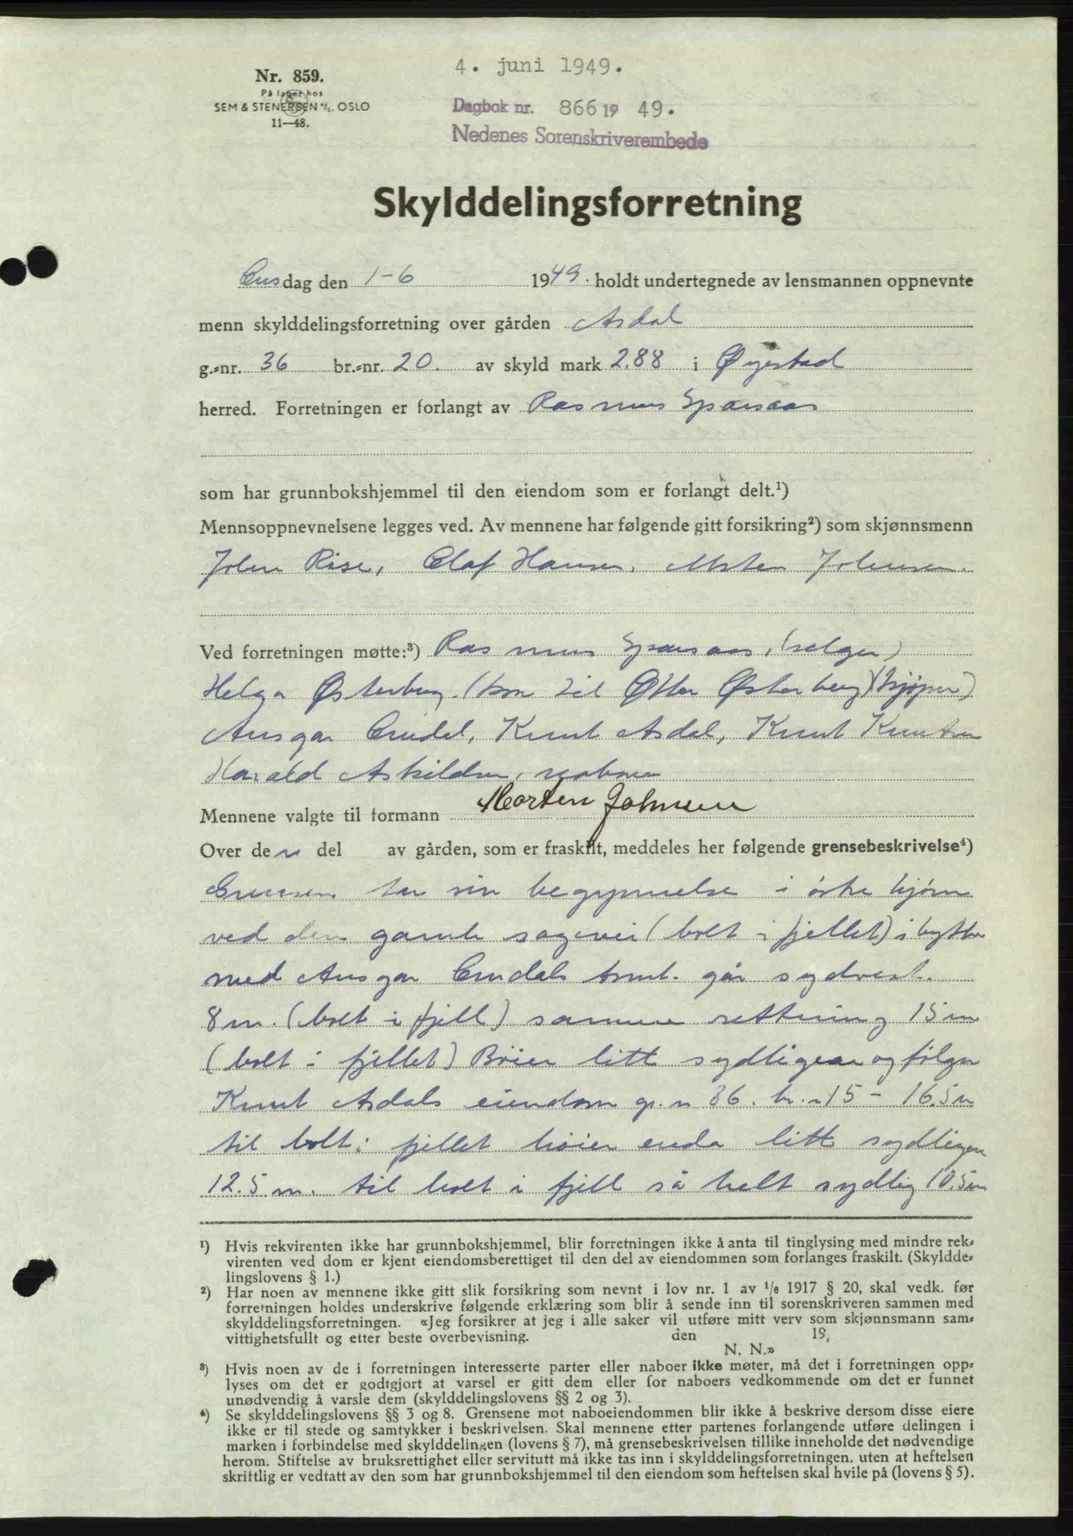 4. juni 1949.
Nr. 859.
På lager hos
SEM & STENERSEN A/S. OSLO
11—48.
Dagbok nr. 866 19 49.
Nedenes Sorenskriverembede
Skylddelingsforretning
Onsdag den 1-6 1949. holdt undertegnede av lensmannen oppnevnte
menn skylddelingsforretning over gården Asdal
g.-nr. 36 br.-nr. 20. av skyld mark 2.88 i Øyestad
herred. Forretningen er forlangt av Rasmus Sparsaas
som har grunnbokshjemmel til den eiendom som er forlangt delt.¹)
Mennsoppnevnelsene legges ved. Av mennene har følgende gitt forsikring²) som skjønnsmenn
John Rise, Olaf Hansen, Morten Johnsen.
Ved forretningen møtte:³) Rasmus Sparsaas, (selger)
Helga Østerberg. (kone til Otter Østerberg) (kjøper)
Ansgar Crudal, Knut Asdal, Knut Knutsen
Harald Askildsen, naboer
Mennene valgte til formann Morten Johnsen
Over den del av gården, som er fraskilt, meddeles her følgende grensebeskrivelse⁴)
Grensen tar sin begynnelse i østre hjørne
ved den gamle sagevei (bolt i fjellet) i bytte
med Ansgar Crudals tomt. går sydvest.
8 m. (bolt i fjell) samme retning 15 m
(bolt i fjellet) Bøier litt sydligere og følger
Knut Asdals eiendom gr. n 36. br. n 15 - 16.5 m
til bolt i fjellet bøier enda litt sydligere
12.5 m. til bolt i fjell så helt sydlig 10.5 m
¹) Hvis rekvirenten ikke har grunnbokshjemmel, blir forretningen ikke å anta til tinglysing med mindre rek-
virenten ved dom er kjent eiendomsberettiget til den del av eiendommen som forlanges fraskilt. (Skyldde-
lingslovens § 1.)
²) Har noen av mennene ikke gitt slik forsikring som nevnt i lov nr. 1 av 1/6 1917 § 20, skal vedk. før
forretningen holdes underskrive følgende erklæring som blir å sende inn til sorenskriveren sammen med
skylddelingsforretningen. «Jeg forsikrer at jeg i alle saker vil utføre mitt verv som skjønnsmann sam-
vittighetsfullt og etter beste overbevisning. den 19,
N. N.»
³) Hvis noen av de i forretningen interesserte parter eller naboer ikke møter, må det i forretningen opp-
lyses om det er godtgjort at varsel er gitt dem eller for naboers vedkommende om det er funnet
unødvendig å varsle dem (skylddelingslovens §§ 2 og 3).
⁴) Se skylddelingslovens §§ 3 og 8. Grensene mot naboeiendommen blir ikke å beskrive dersom disse eiere
ikke er til stede og samtykker i beskrivelsen. Skal mennene etter partenes forlangende utføre delingen i
marken i forbindelse med skylddelingen (lovens § 7), må grensebeskrivelsen tillike inneholde det nødvendige
herom. Stiftelse av bruksrettighet eller servitutt må ikke tas inn i skylddelingsforretningen. uten at heftelsen
skriftlig er vedtatt av den som har grunnbokshjemmel til den eiendom som heftelsen skal hvile på (lovens § 5).